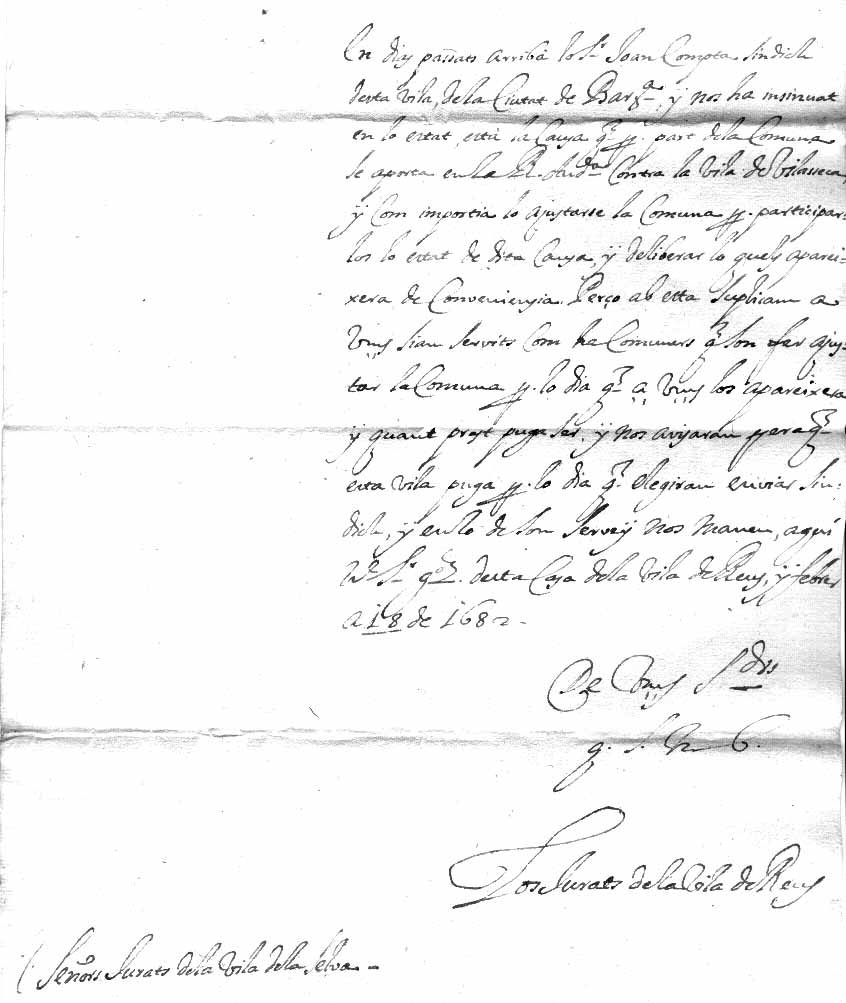 En dias passats arribà lo Sr. Joan Compta sindich
desta vila, de la Ciutat de Barna., y nos ha insinuat
en lo estat està la Causa q. p. part de la Comuna
se aporta en la Rl. Auda. Contra la Vila de Vilasseca,
y Com importia lo ajustarse la Comuna p. participar-
los lo estat de dita Causa, y deliberar lo quels aparei-
xera de Conveniensia. Perço ab esta Suplicam a
Vms sian servits Com ha Comuners q. son fer ajus-
tar la Comuna p. lo dia q. a Vms los apareixera
y quant prest puga ser, y nos avisaran pera q.
esta vila puga p. lo dia q. elegiran enviar Sin-
dich, y en lo de son servey nos manen, a qui
Nr. Sr. gde. desta Casa de la Vila de Reus, y febrer
a 18 de 1682.
De Vms Sdrs
q. S. M. B.
Los Jurats de la Vila de Reus
Señors Jurats de la Vila de la Selva